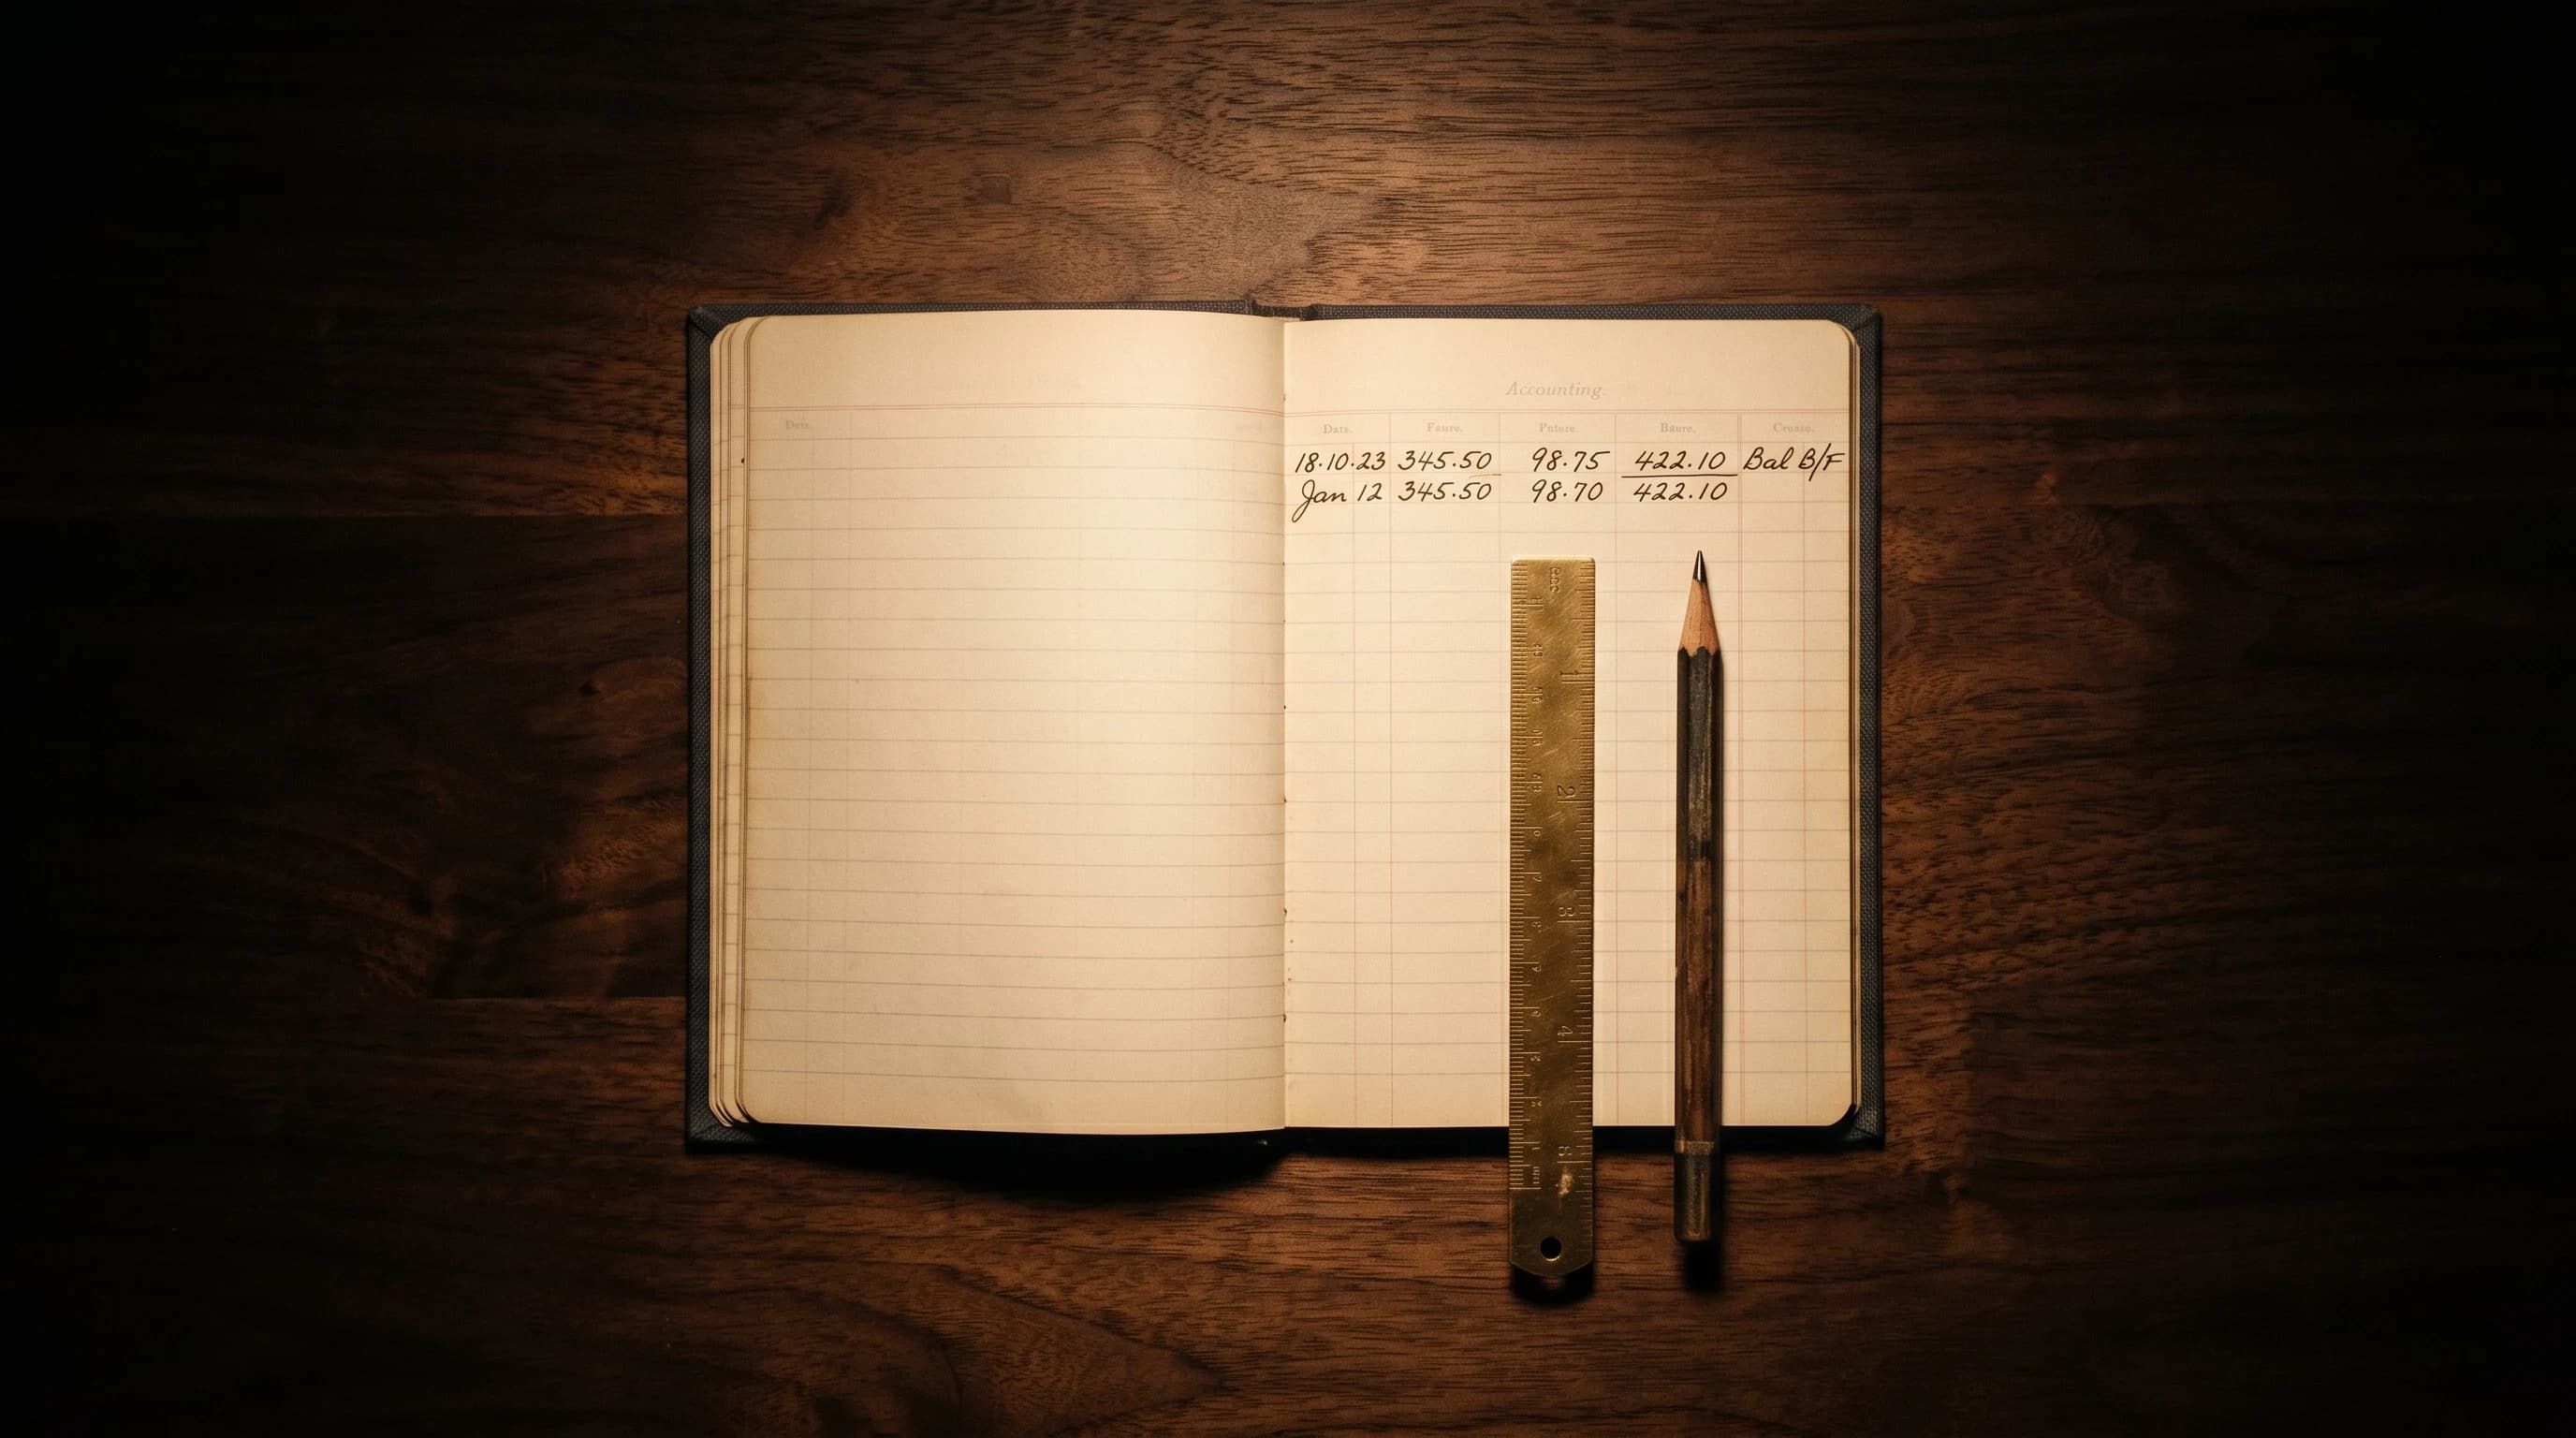 Accounting.
Date. Faure. Puture. Baure. Create.
18.10.23 345.50 98.75 422.10 Bal B/F
Jan 12 345.50 98.70 422.10
1
2
3
4